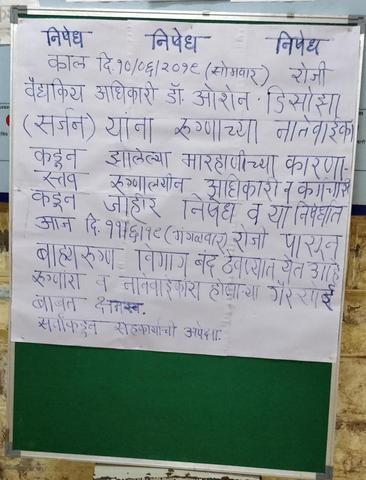 निषेध निषेध निषेध
काल दि.१०/०६/२०१९ (सोमवार) रोजी
वैद्यकिय अधिकारी डॉ ओरोन. डिसोझा
(सर्जन) यांना रुग्णाच्या नातेवाईका
कडून झालेल्या मारहाणीच्या कारणा-
स्तव रुग्णालयीन अधिकारी व कर्मचारी
कडून जाहीर निषेध व या निषेधात
आज दि. ११/६/१९ (मंगळवार) रोजी पासून
बाह्यरुग्ण विभाग बंद ठेवण्यात येत आहे
रुग्णास व नातेवाईकास होणाऱ्या गैरसोई
बाबत क्षमस्व.
सर्वांकडून सहकार्याची अपेक्षा.